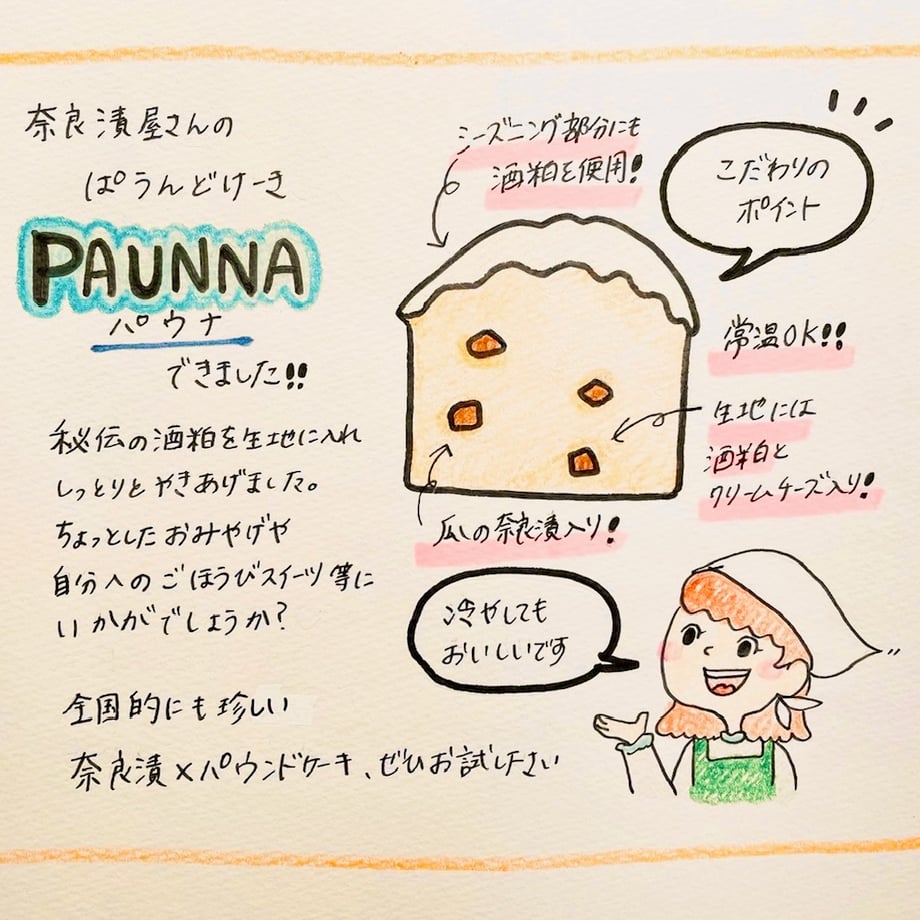 奈良漬屋さんの
ぱうんどけーき
PAUNNA
パウナ
できました!!
秘伝の酒粕を生地に入れ
しっとりとやきあげました。
ちょっとしたおみやげや
自分へのごほうびスイーツ等に
いかがでしょうか?
全国的にも珍しい
奈良漬×パウンドケーキ、ぜひお試し下さい
こだわりの
ポイント
シーズニング部分にも
酒粕を使用!
常温OK!!
生地には
酒粕と
クリームチーズ入り!
瓜の奈良漬入り!
冷やしても
おいしいです